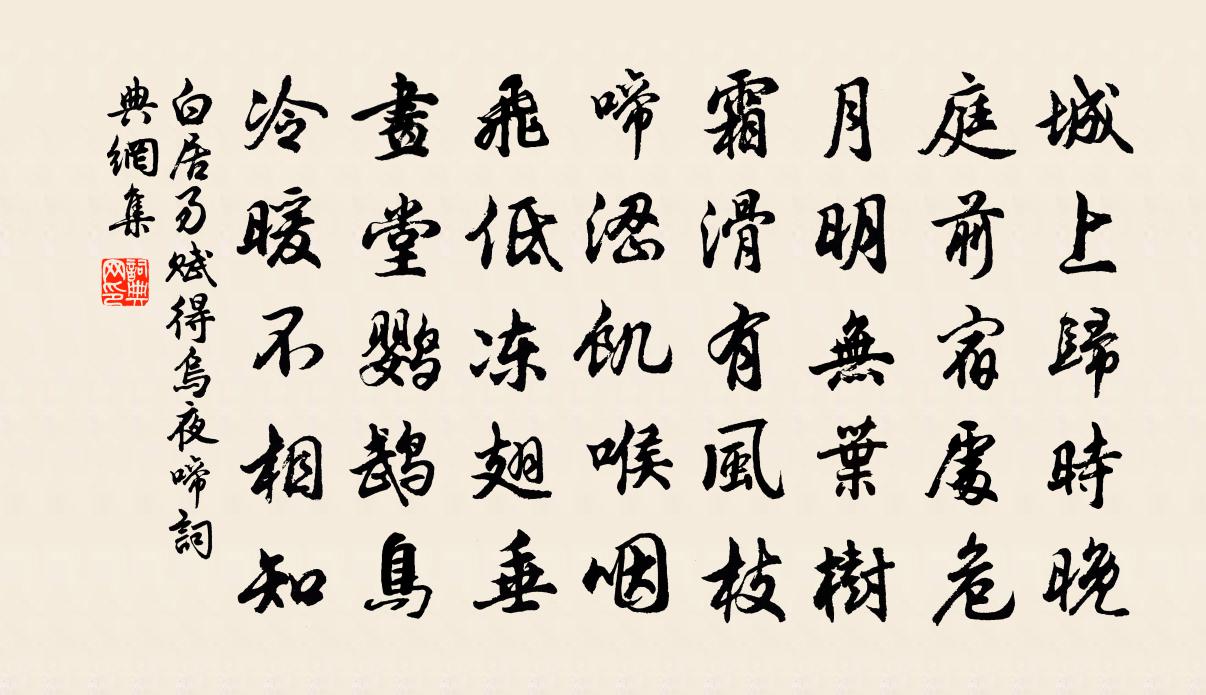 城上歸時晚
庭前宿處危
月明無葉樹
霜滑有風枝
啼澀飢喉咽
飛低凍翅垂
畫堂鸚鵡鳥
冷暖不相知
白居易賦得烏夜啼詞
典網集
詞典
网印